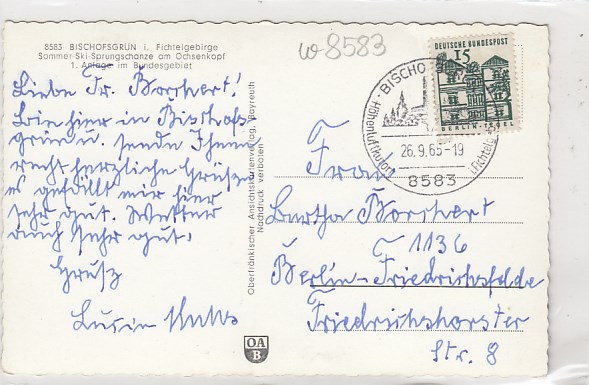 8583 BISCHOFSGRÜN i. Fichtelgebirge
Sommer-Ski-Sprungschanze am Ochsenkopf
1. Anlage im Bundesgebiet
w 8583
Liebe Fr. Borchert!
Bin hier in Bischofs-
grün u. sende Ihnen
recht herzliche Grüße
es gefällt mir hier
sehr gut. Wetter
auch sehr gut.
Gruß
Lucie
Oberfränkischer Ansichtskartenverlag, Bayreuth
Nachdruck verboten
OA
B
DEUTSCHE BUNDESPOST
15
BERLIN-TEGEL
BISCHO
Höhenluftkurort
(Fichtelgeb
26.9.65-19
8583
Frau
Bertha Borchert
1136
Berlin-Friedrichsfelde
Friedrichshorster
Str. 8